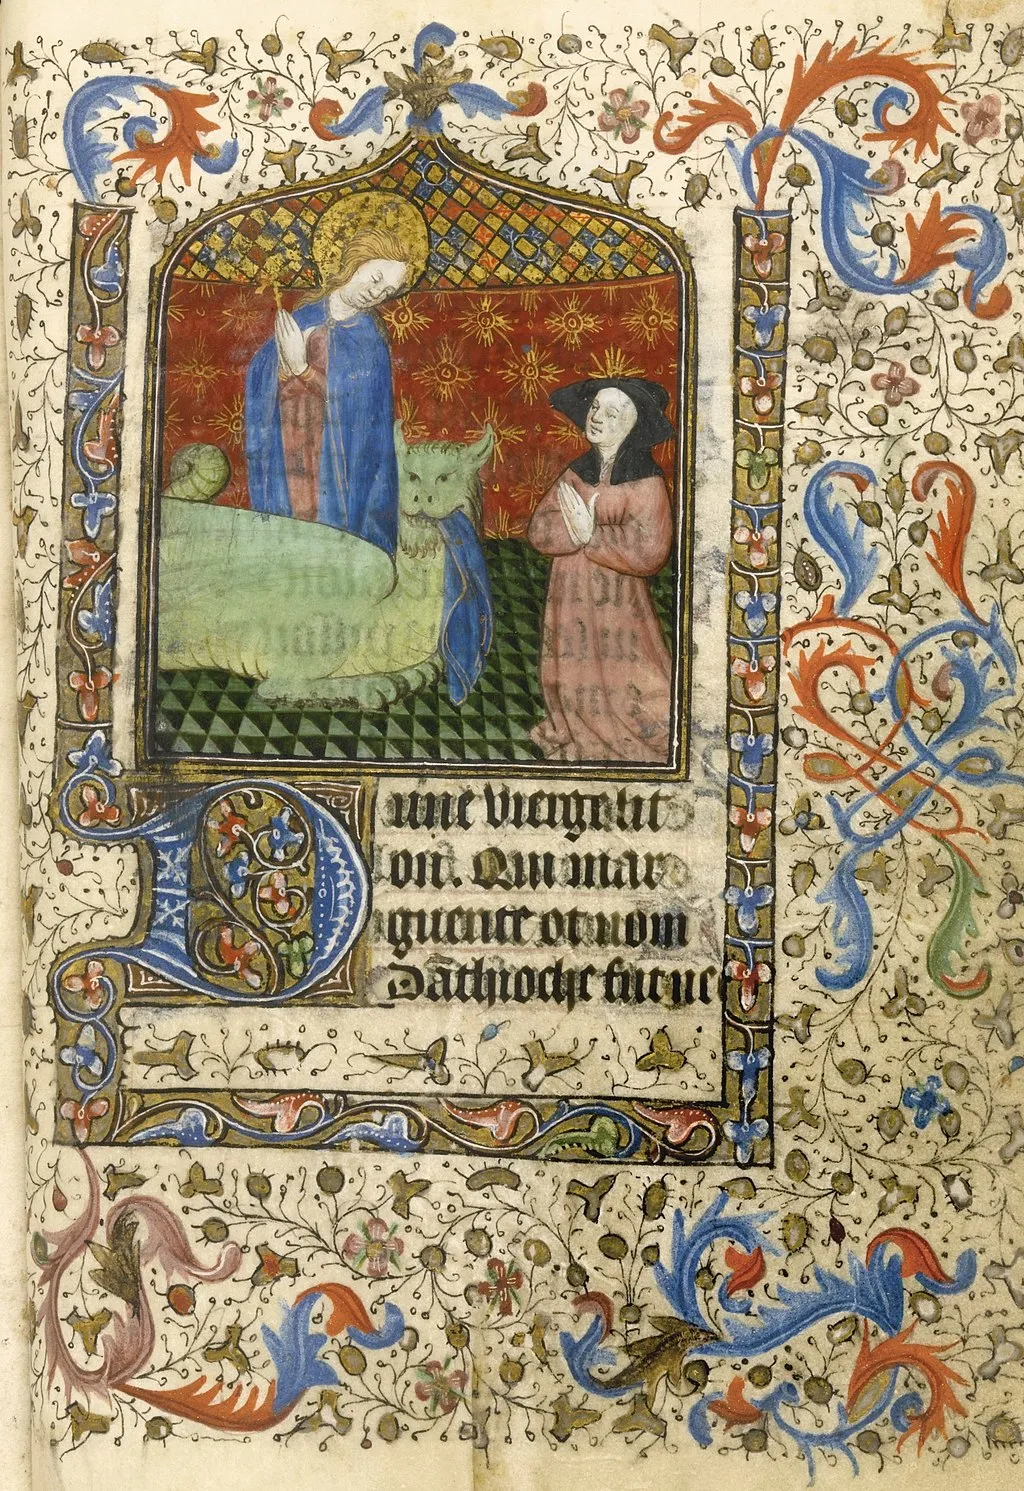 Dune vierge lit
on. Qui mar
guerite ot nom
Dāthioche fut ne